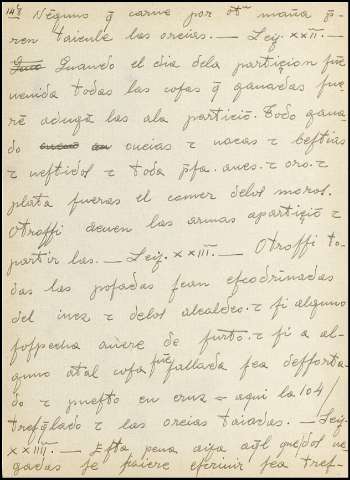 147 Nēguno q̄ carne por ot̄ maña p̄-
ren taienle las oreias. — Leiẏ. xxII. —
Quando el dia dela particion fue
uenida todas las cosas q̄ ganadas fue
rē adugā las ala particiō. Todo gana
do oueias τ uacas τ bestias
τ uestidos τ toda p̄sa. aues. τ oro. τ
plata fueras el comer delos moros.
Otrossi deuen las armas aparticiō τ
partir las. — Leiẏ. xxIII. — Otrossi to-
das las posadas sean escodrinadas
del iuez τ delos alcaldes. τ si alguno
sospecha auiere de furto. τ si a al-
guno atal cosa fue fallada sea desforta
do τ puesto en cruz = aqui la 104/
tresq̄lado τ las oreias taiadas. — Leiẏ.
xxIIII. — Esta pena aya aq̄l que los ne-
gadas se faiere escriuir sea tres-